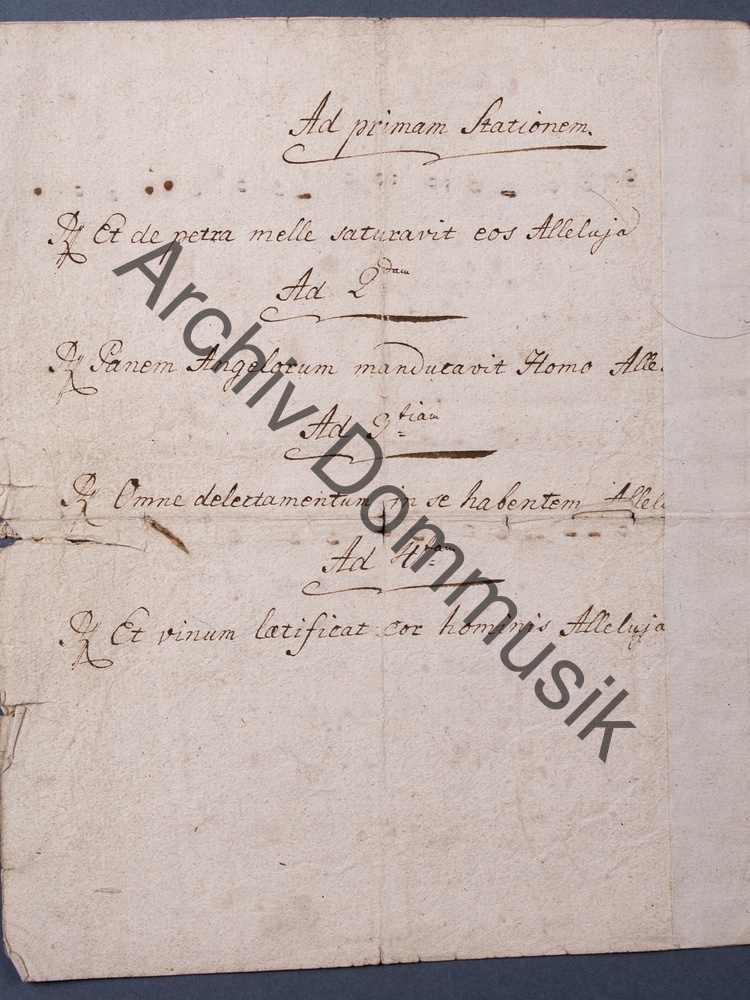 Ad primam Stationem.
℟ Et de petra melle saturavit eos Alleluja
Ad 2dam
℟ Panem Angelorum manducavit Homo Alle.
Ad 3tiam
℟ Omne delectamentum in se habentem Allel
Ad 4tam
℟ Et vinum lætificat cor hominis Alleluja
Archiv Dommusik